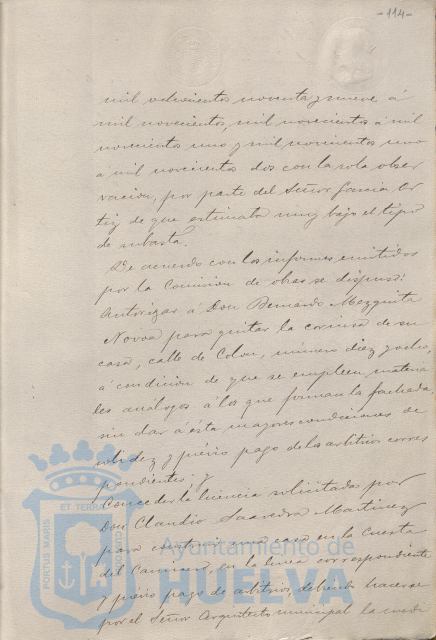 -114-
mil ochocientos noventa y nueve á
mil novecientos, mil novecientos á mil
novecientos uno y mil novecientos uno
á mil novecientos dos con la sola obser
vacion, por parte del Señor Garcia Or
tiz de que estimaba muy bajo el tipo
de subasta.
De acuerdo con los informes emitidos
por la Comision de obras se dispuso:
Autorizar á Don Bernardo Mezquita
Novoa para quitar la cornisa de su
casa, calle de Colon, número diez y ocho,
á condicion de que se empleen materia
les análogos á los que forman la fachada,
sin dar á ésta mayores condiciones de
solidez y prévio pago de los arbitrios corres
pondientes; y
Conceder la licencia solicitada por
Don Claudio Saavedra Martinez
para construir una casa en la Cuesta
del Carnicero, en la linea correspondiente
y prévio pago de arbitrios, debiendo hacerse
por el Señor Arquitecto municipal la
PORTUS MARIS
ET TERRÆ
CUSTODIA
Ayuntamiento de
HUELVA